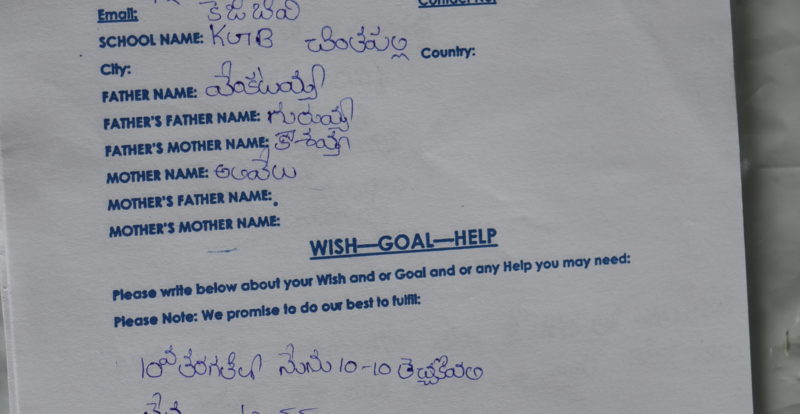 Email: కెజిబివి
SCHOOL NAME: KGB చింతపల్లి Country:
City:
FATHER NAME: వెంకటయ్య
FATHER'S FATHER NAME: గురువయ్య
FATHER'S MOTHER NAME: కాశమ్మ
MOTHER NAME: అలివేలు
MOTHER'S FATHER NAME:
MOTHER'S MOTHER NAME:
WISH—GOAL—HELP
Please write below about your Wish and or Goal and or any Help you may need:
Please Note: We promise to do our best to fulfill:
10వ తరగతిలో నేను 10-10 తెచ్చుకోవాలి